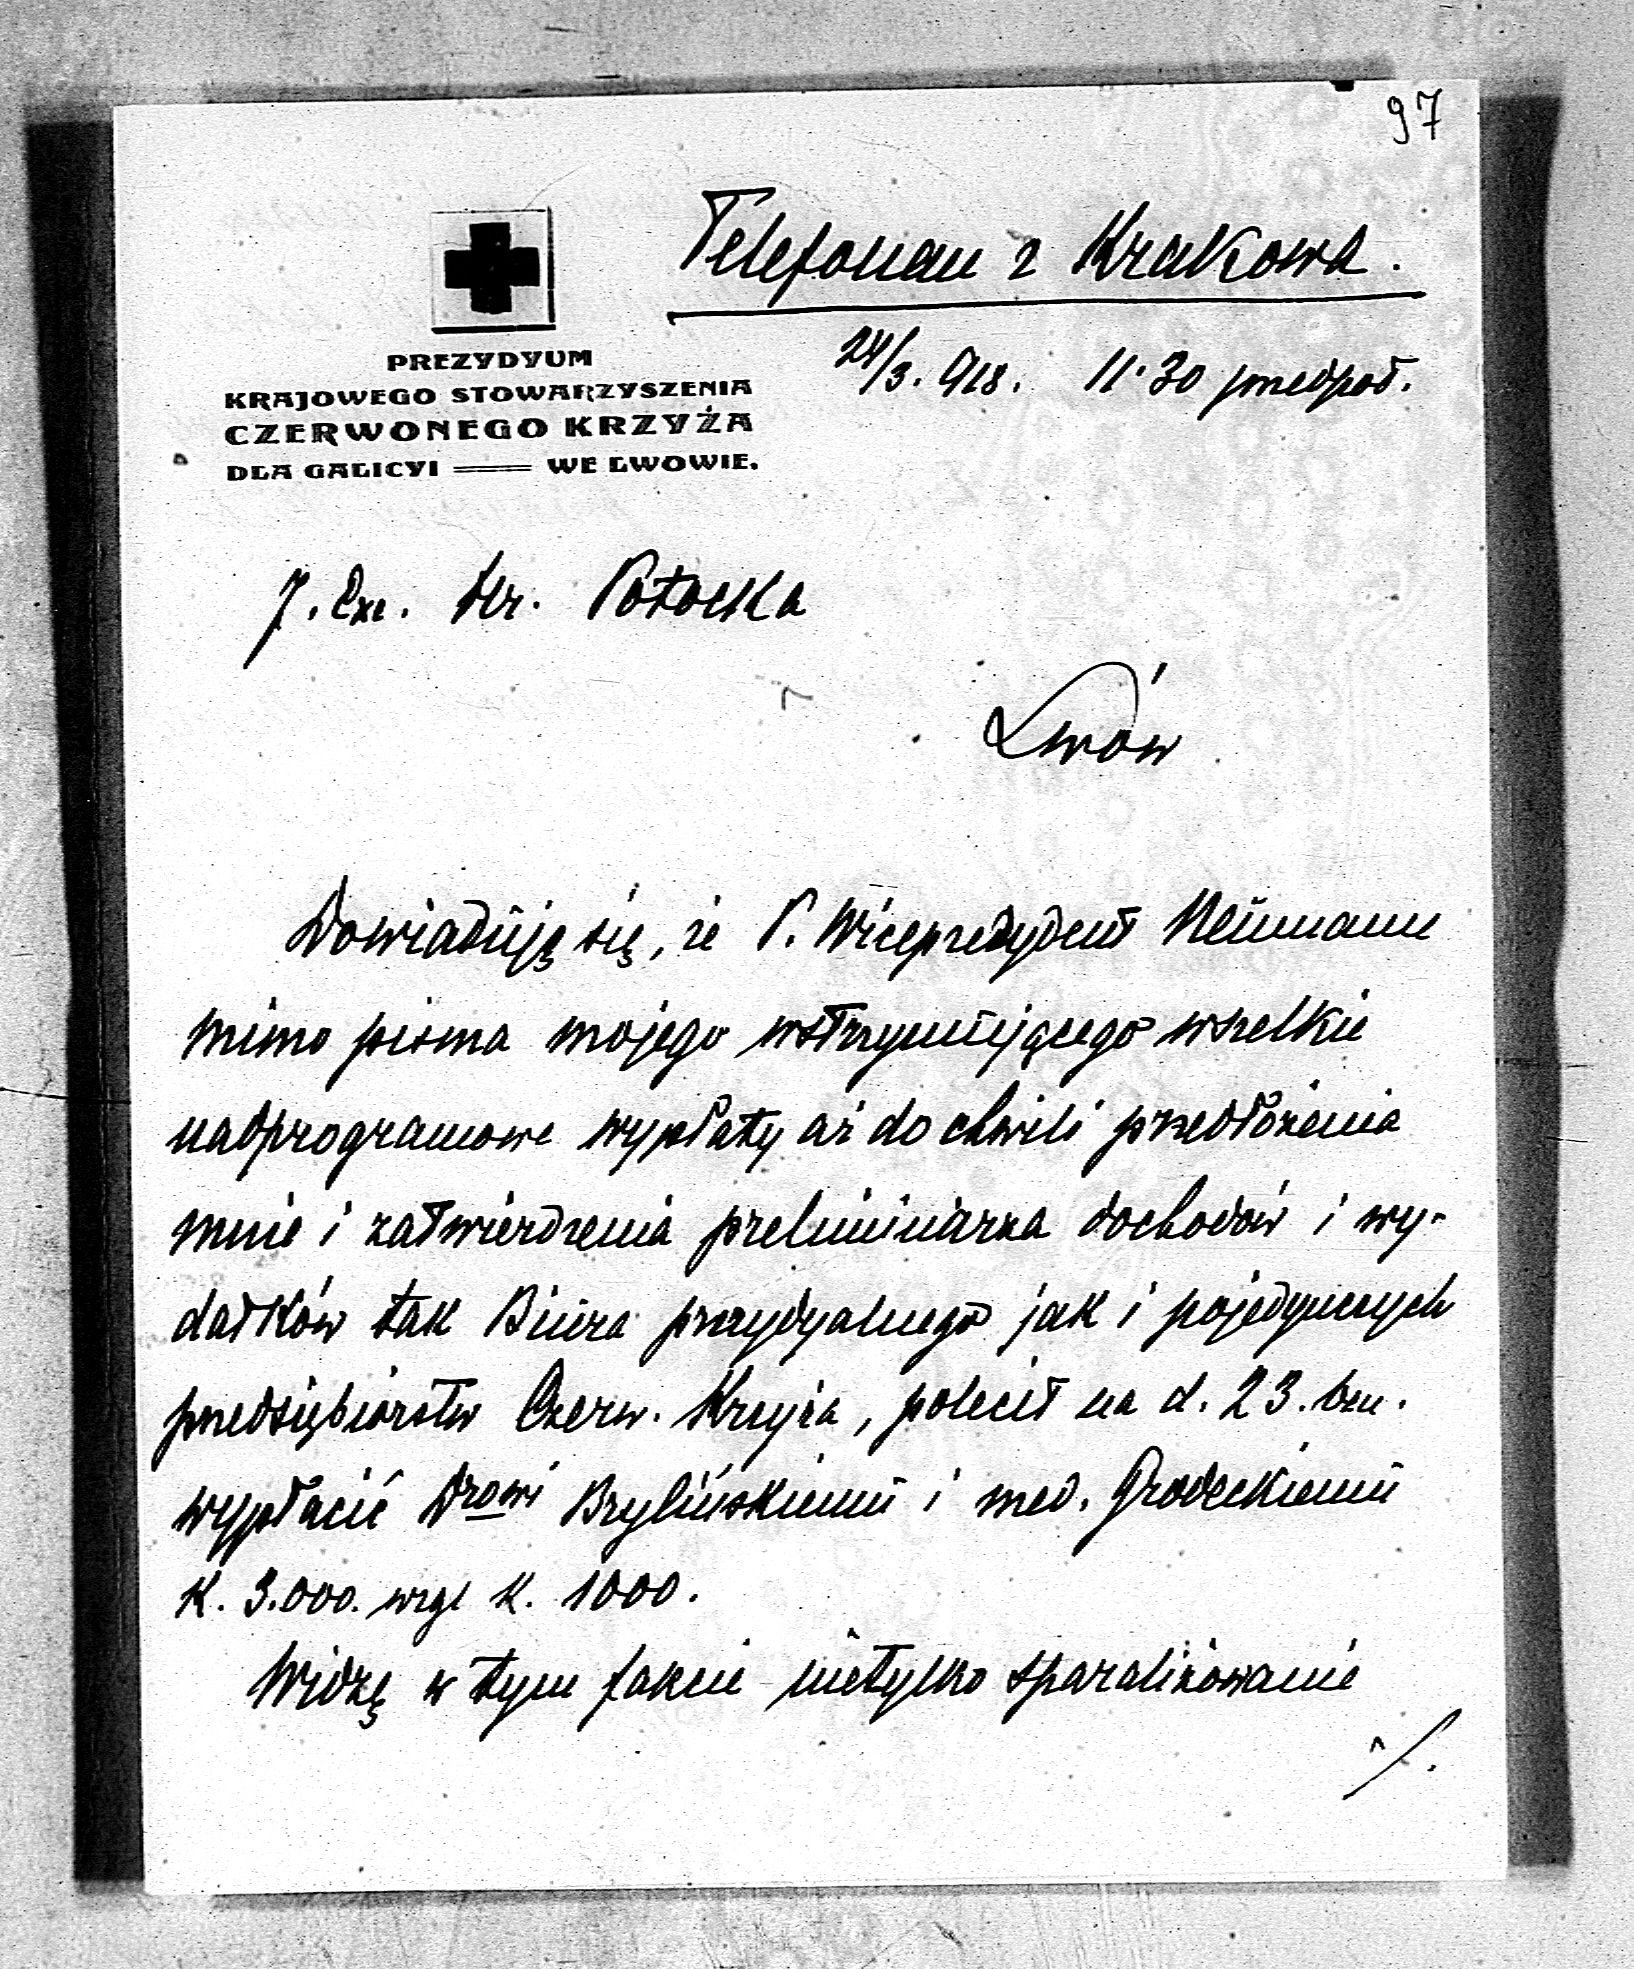 97
Telefonem z Krakowa.
24/3. 918. 11·30 przedpoł.
PREZYDYUM
KRAJOWEGO STOWARZYSZENIA
CZERWONEGO KRZYŻA
DLA GALICYI WE LWOWIE.
J. Exc. Hr. Potocka
Lwów
Dowiaduję się, że P. Wiceprezydent Neumann
mimo pisma mojego wstrzymującego wszelkie
nadprogramowe wypłaty aż do chwili przedłożenia
mnie i zatwierdzenia preliminarza dochodów i wy-
datków tak Biura prezydyalnego jak i pojedynczych
przedsiębiorstw Czerw. Krzyża, polecił na d. 23. bm.
wypłacić Drowi Brylińskiemu i med. Grodeckiemu
K. 3.000. wzgl K. 1000.
Widzę w tym fakcie nietylko sparaliżowanie
./.